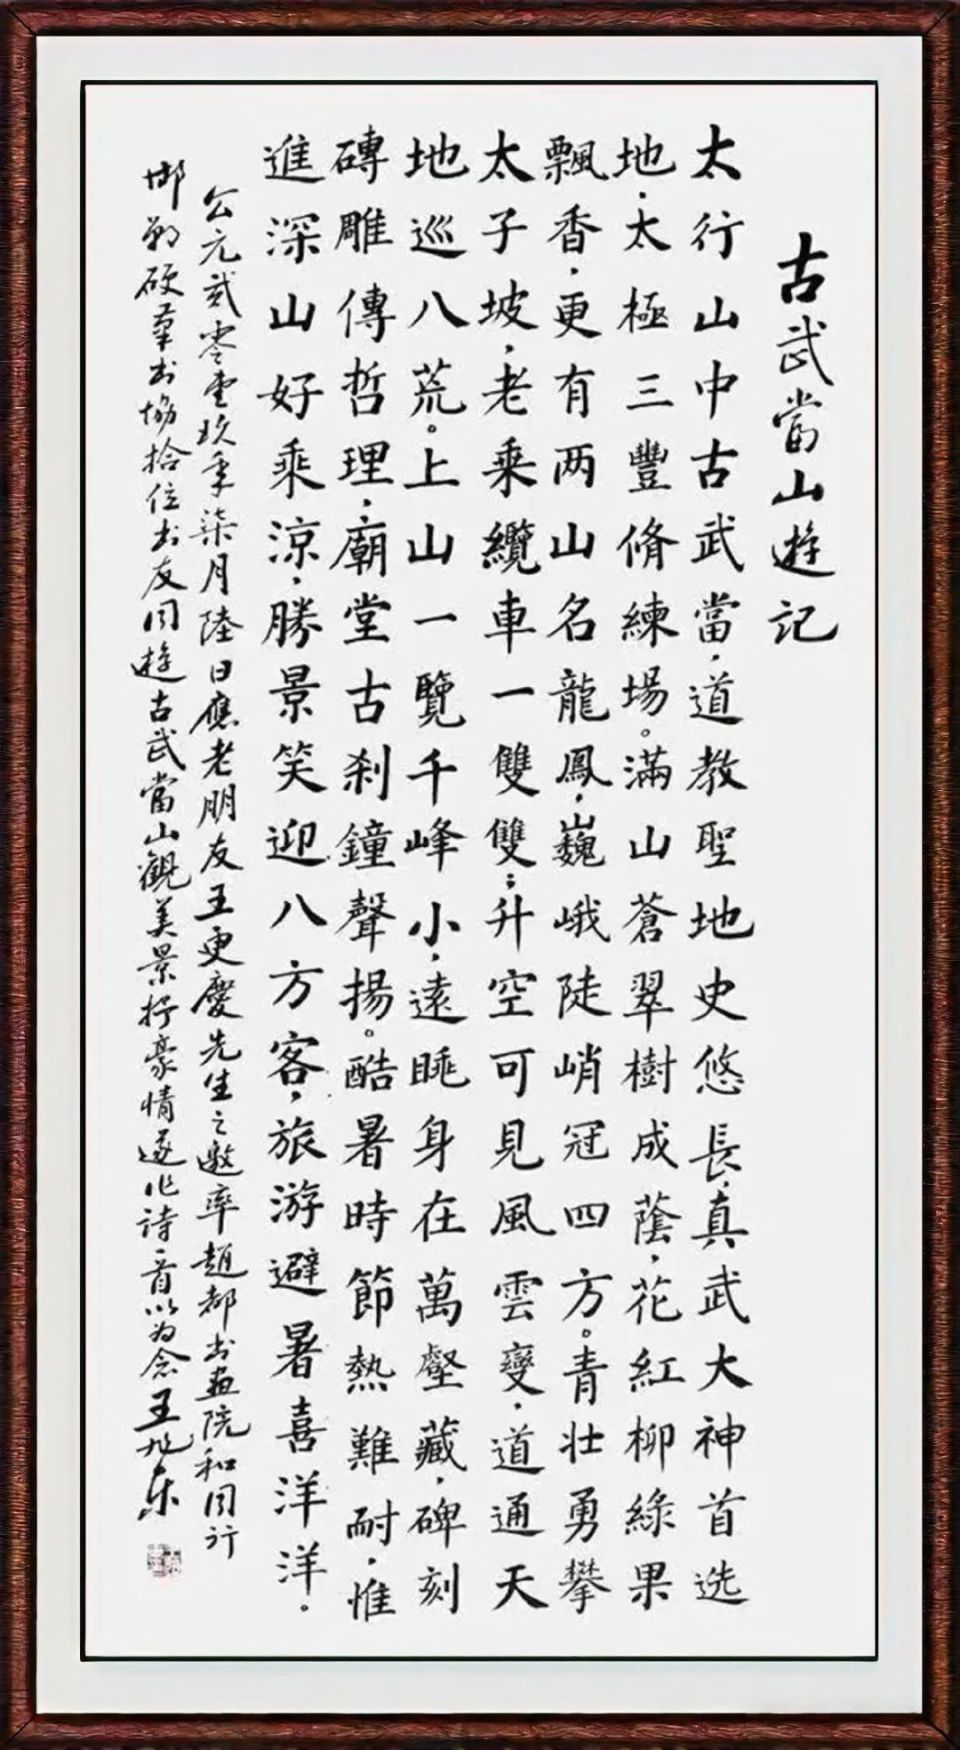 古武當山遊記
太行山中古武當，道教聖地史悠長，真武大神首选
地，太極三豐脩練場。滿山蒼翠樹成蔭，花紅柳綠果
飄香，更有两山名龍鳳，巍峨陡峭冠四方。青壮勇攀
太子坡，老乘纜車一雙雙；升空可見風雲變，道通天
地巡八荒。上山一覽千峰小，遠眺身在萬壑藏，碑刻
磚雕傳哲理，廟堂古剎鐘聲揚。酷暑時節熱難耐，惟
進深山好乘涼，勝景笑迎八方客，旅游避暑喜洋洋。
公元貳零壹玖年柒月陸日應老朋友王更慶先生之邀率趙都书画院和同行
邯鄲硬筆书協拾位书友同遊古武當山觀美景抒豪情遂作詩一首以为念王旭东